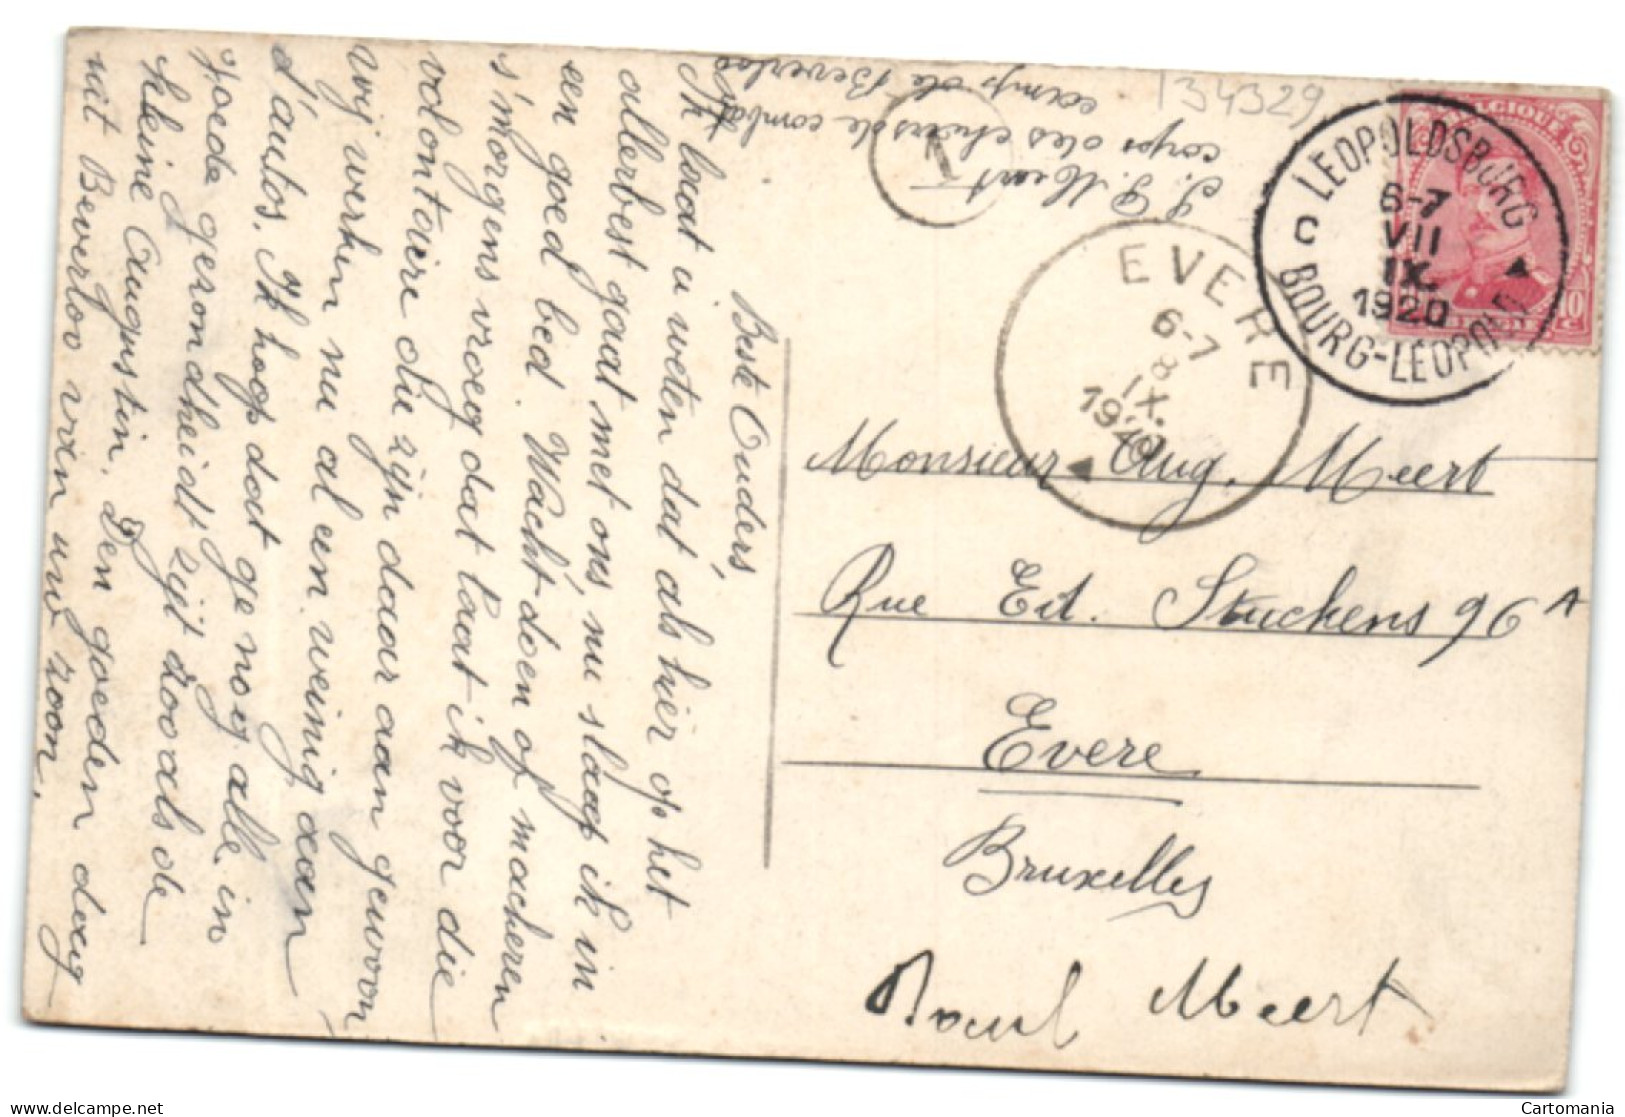 Beste Ouders,
Ik laat u weten dat als hier op het
allerbest gaat met ons, nu slaap ik in
een goed bed. Wacht doen of macheren
s'morgens vroeg dat laat ik voor die
volontaire die zijn daar aan gewoon
wij werken nu al een weinig aan
d'autos. Ik hoop dat ge nog alle in
goede gezondheidt zijt zooals de
kleine Augustin. Den goeden dag
uit Beverloo van uw zoon,
J. J. Meert
corps des chars de combat
camp de Beverloo
134329
1
BELGIQUE
10 c
LEOPOLDSBURG
C
6-7
VII
IX
1920
BOURG-LEOPOLD
EVERE
6-7
8
IX.
1920
Monsieur Aug. Meert
Rue Ed. Stuckens 96 A
Evere
Bruxelles
Raoul Meert
Cartomania